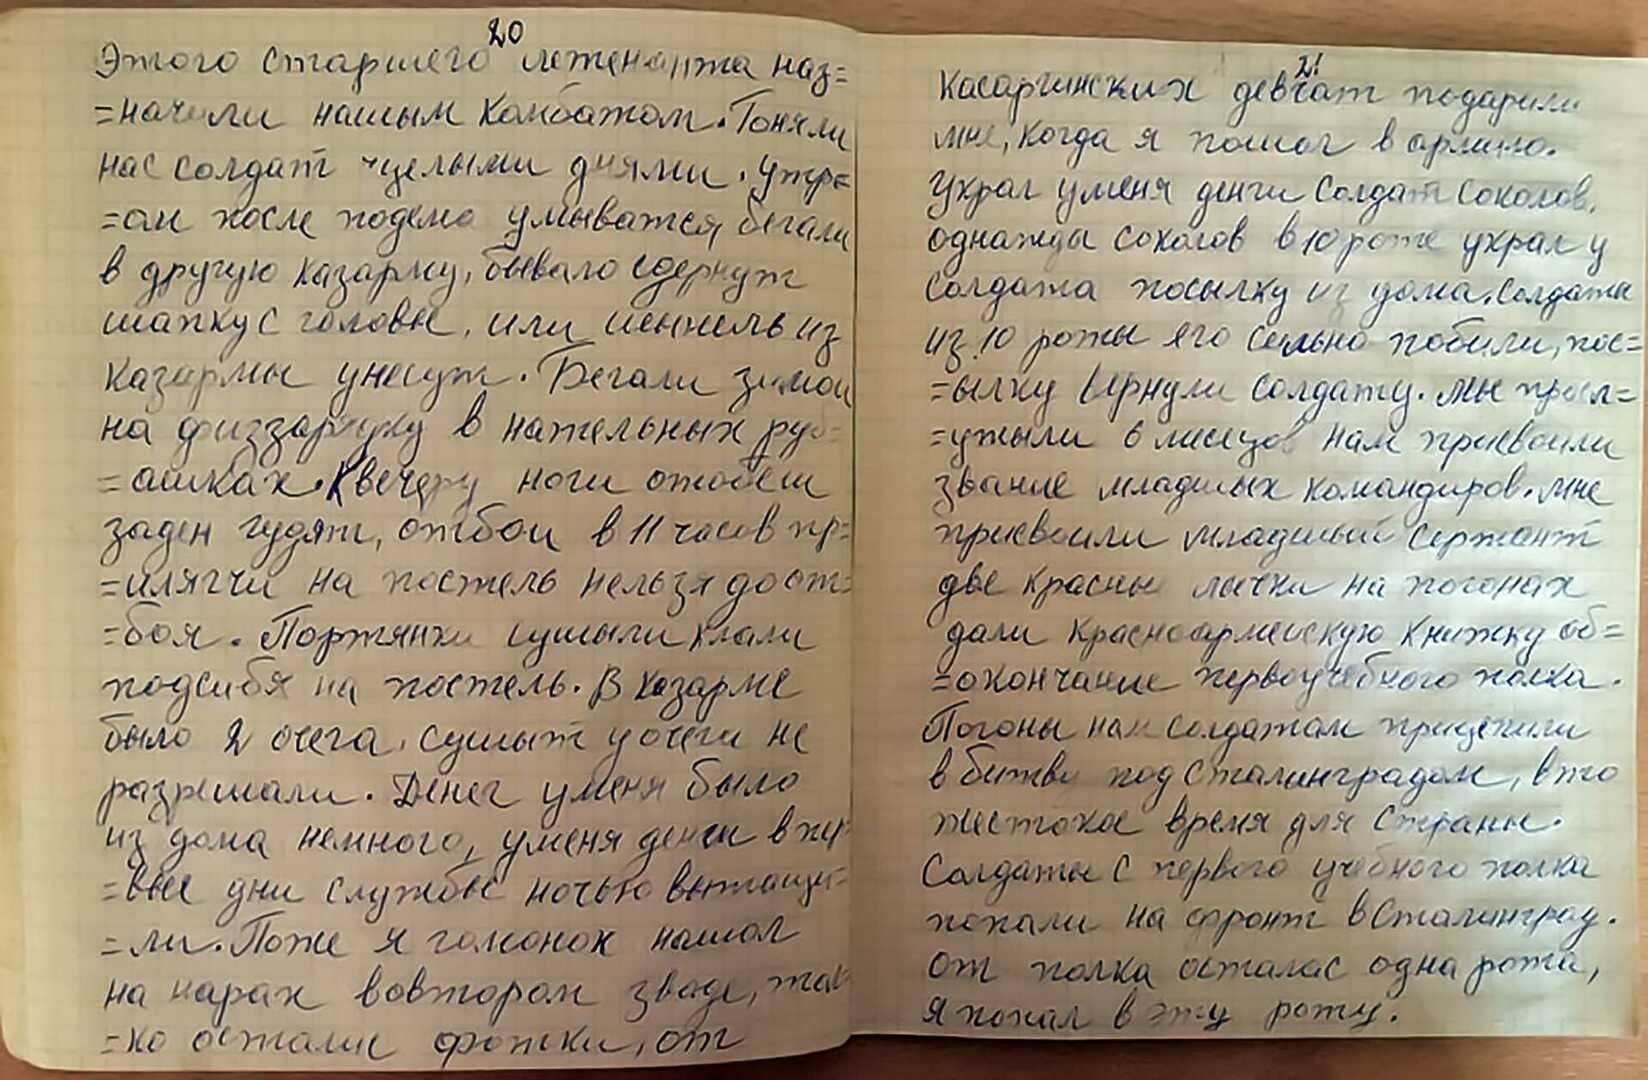 20
Этого старшего летенанта наз=
=начили нашым Комбатом. Гоняли
нас солдат целыми днями. Утр=
=ом после подема умыватся бегали
в другую казарму, бывало сдернут
шапку с головы, или шеннель из
казармы унесут. Бегали зимой
на физзарядку в нательных руб=
=ашках. К вечеру ноги отобеш
заден гудят, отбой в 11 часов пр=
=илягчи на постель нельзя до от=
=боя. Портянки сушыли клали
подсибя на постель. В казарме
было 2 очега, сушыт у очега не
разрешали. Денег уменя было
из дома немного, уменя денги в пер
=вые дни службы ночью вытащи=
=ли. Поже я гомонок нашол
на нарах вовтором зводе, тол
=ко осталис фотки, от
21
Касаргинских девчат подарили
мне, когда я пошол в армию.
Украл уменя денги солдат Соколов.
однажды Соколов в 10 роте украл у
солдата посылку из дома. Солдаты
из 10 роты его сильно побили, пос=
=ылку вернули солдату. Мы просл=
=ужыли 6 месецов нам присвоили
звание младшых командиров. Мне
присвоили младшый сержант
две красные лычки на погонах
дали красноармейскую книжку об=
=окончание первоучебного полка.
Погоны нам солдатам прицепили
в битву под Сталинградом, в то
жестокое время для страны.
Солдаты с первого учебного полка
попали на фронт в Сталинград.
От полка осталас одна рота,
я попал в эту роту.